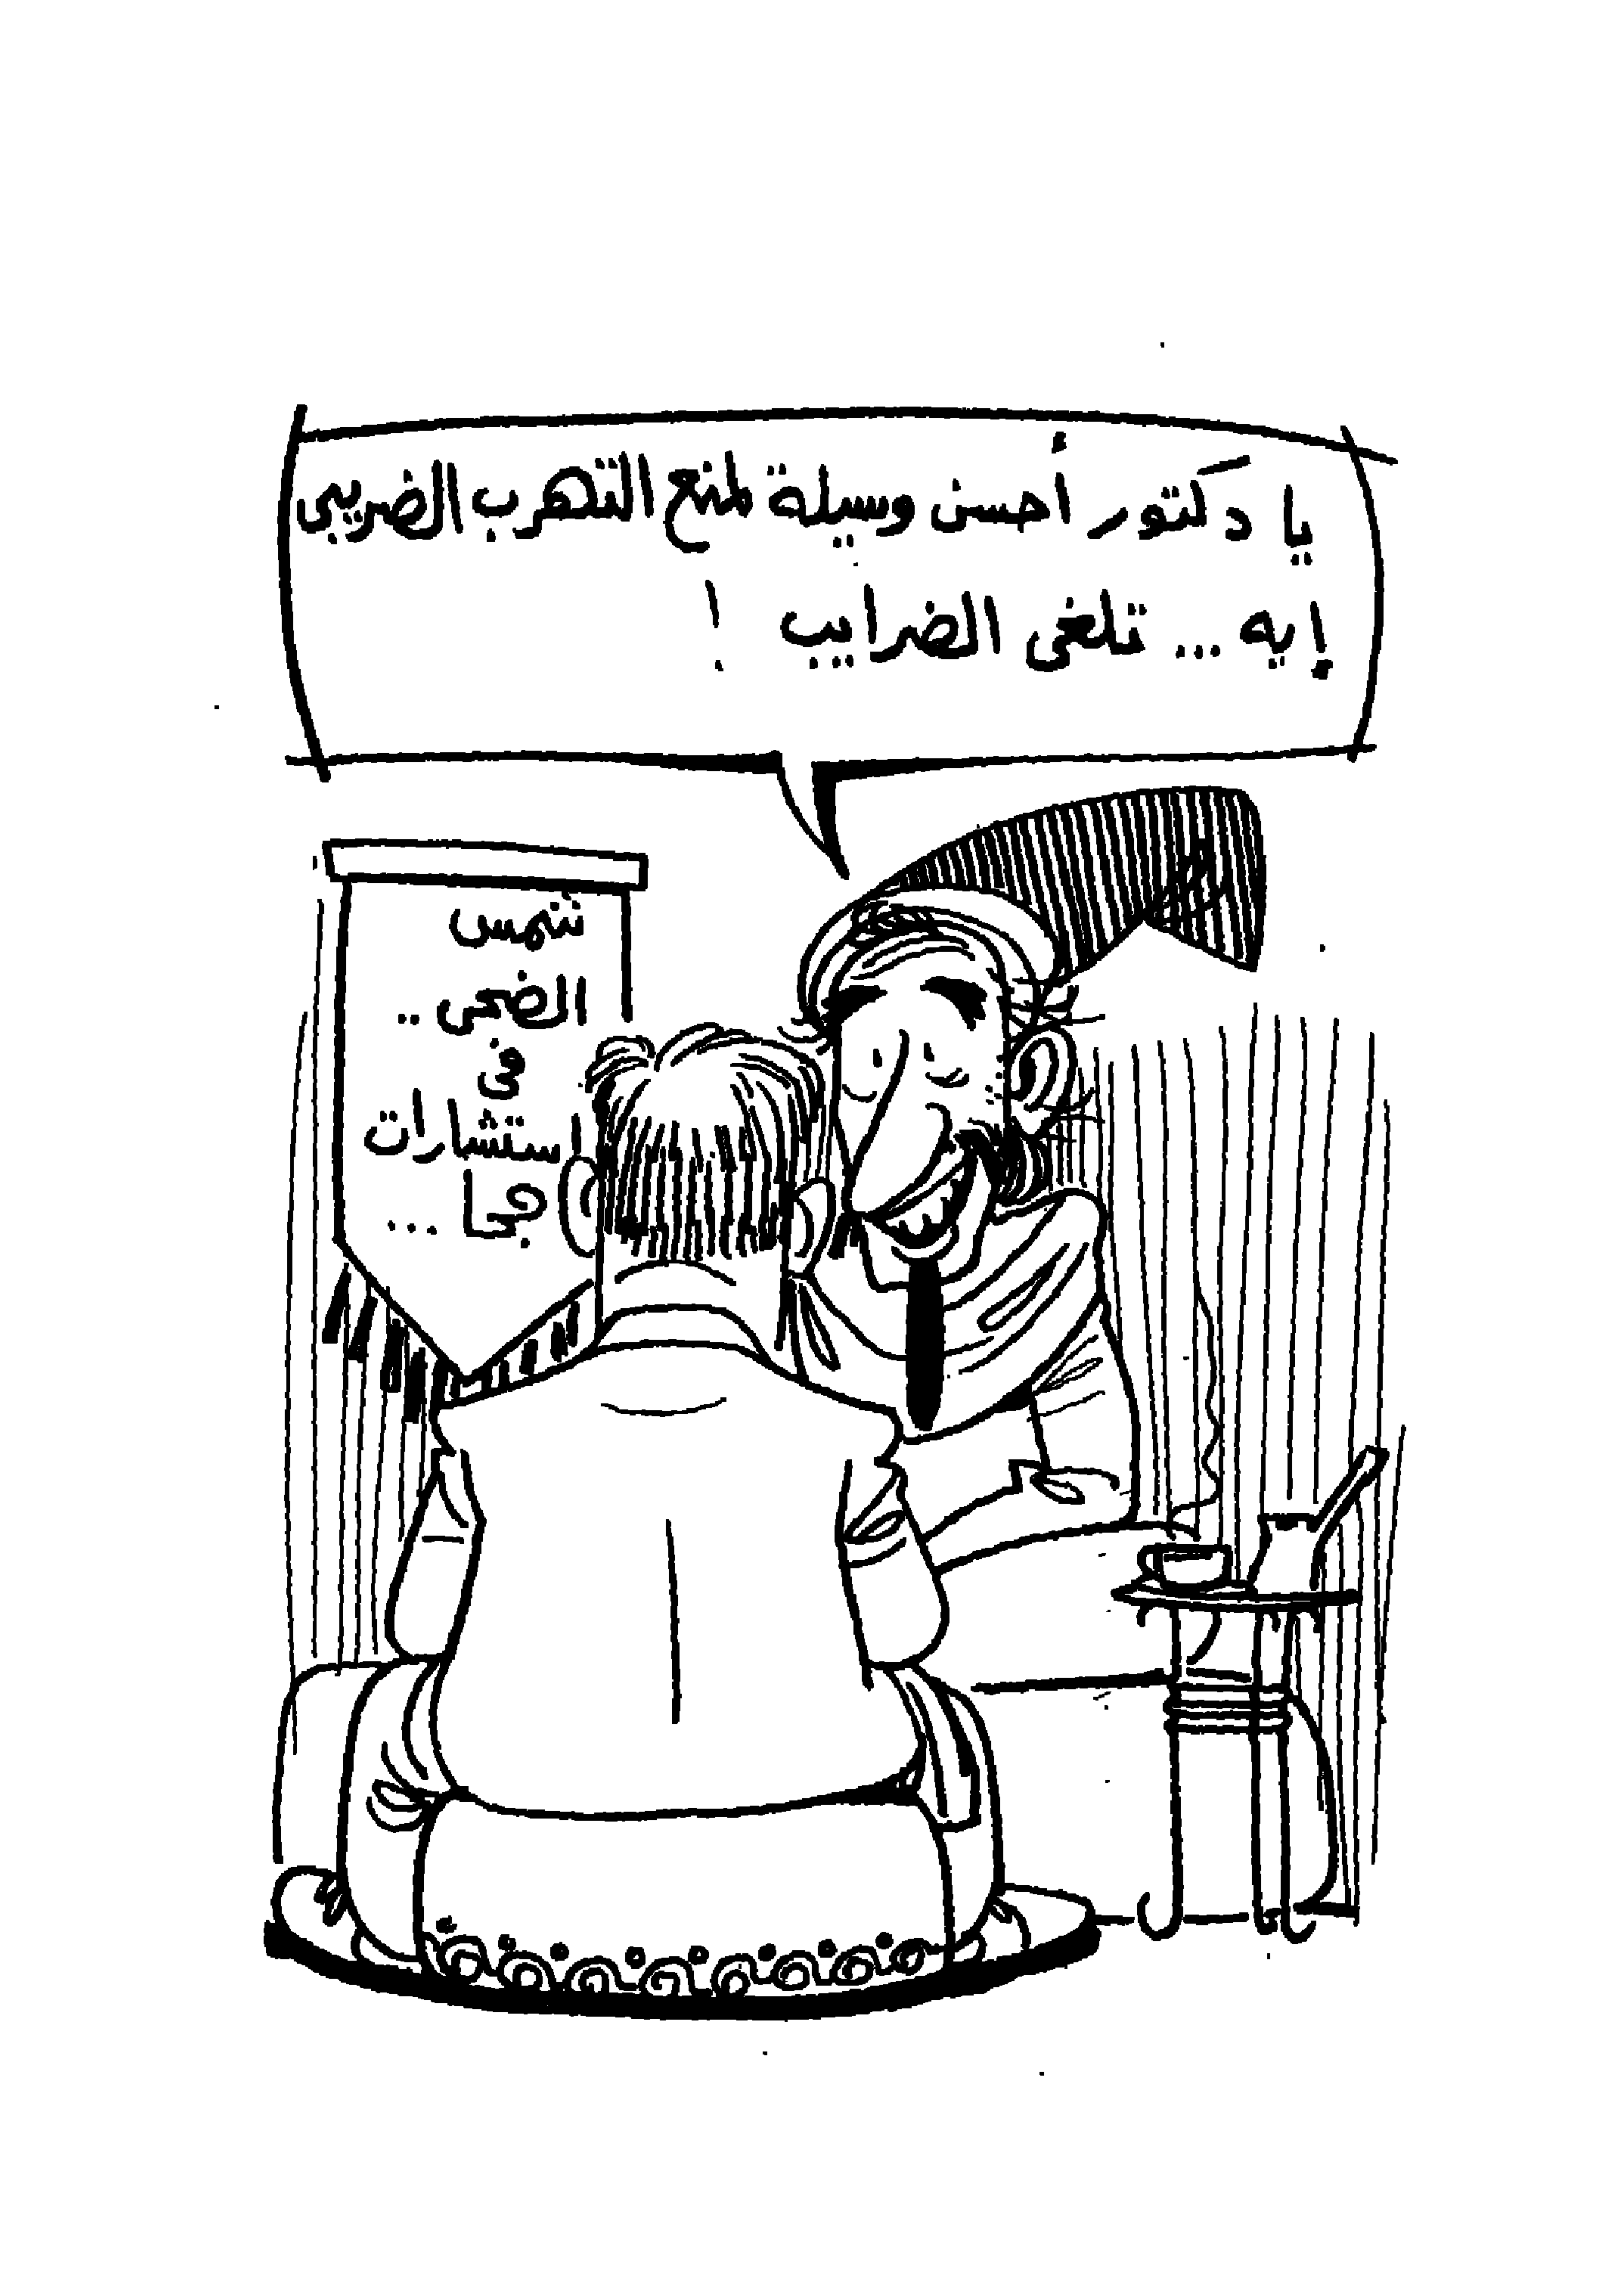 يا دكتور أحسن وسيلة لمنع التهرب الضريبى
إيه ... تلغى الضرايب !
شمس
الضحى ..
فى
استشارات
جحا ...